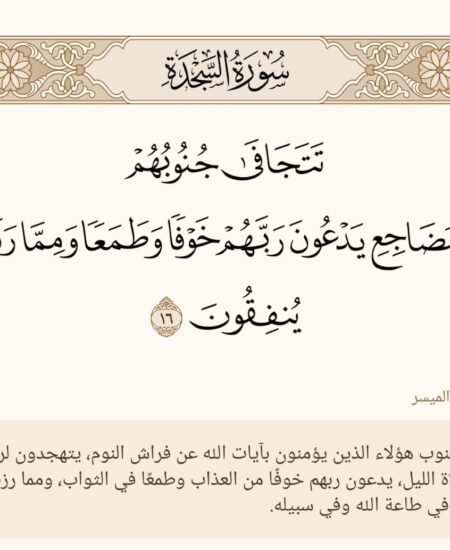 سُورَةُ السَّجْدَةِ
تَتَجَافَىٰ جُنُوبُهُمْ
يَدْعُونَ رَبَّهُمْ خَوْفًا وَطَمَعًا وَمِمَّا
يُنفِقُونَ ١٦
الميسر
هؤلاء الذين يؤمنون بآيات الله عن فراش النوم، يتهجدون
الليل، يدعون ربهم خوفًا من العذاب وطمعًا في الثواب، ومما
في طاعة الله وفي سبيله.